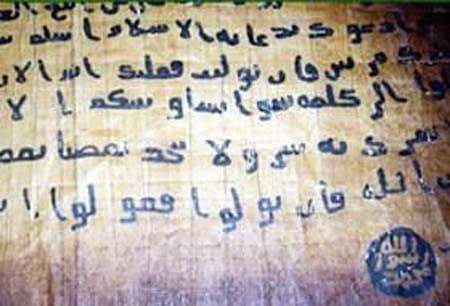 ادعوك بدعاية الاسلام اسلم
مرتين فان توليت فعليك اثم
الى كلمة سوا بيننا وبينكم ا لا
به شيا ولا يتخذ بعضنا
الله فان تولوا فقولوا
الله
رسول
محمد